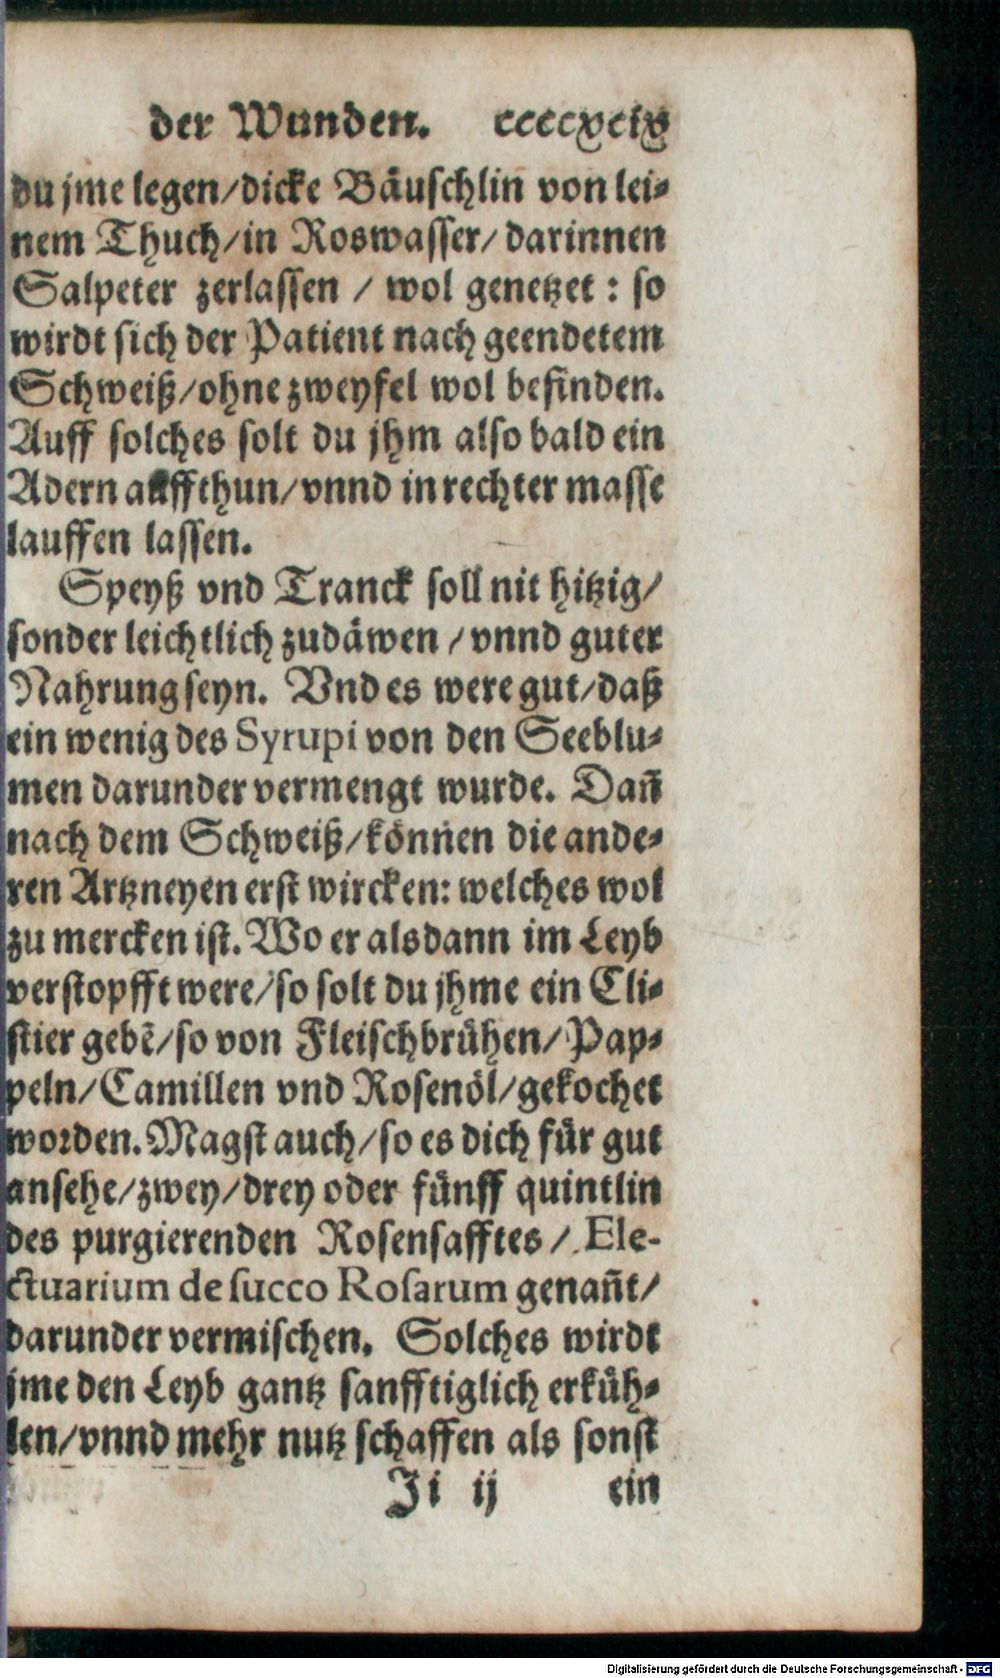 der Wunden. ccccxcix
du jme legen/dicke Bäuschlin von lei⸗
nem Thuch/in Roswasser/darinnen
Salpeter zerlassen / wol genetzet : so
wirdt sich der Patient nach geendetem
Schweiß/ohne zweyfel wol befinden.
Auff solches solt du jhm also bald ein
Adern auffthun/vnnd in rechter masse
lauffen lassen.
Speyß vnd Tranck soll nit hitzig/
sonder leichtlich zudäwen /vnnd guter
Nahrung seyn. Vnd es were gut/daß
ein wenig des Syrupi von den Seeblu⸗
men darunder vermengt wurde. Dañ
nach dem Schweiß/können die ande⸗
ren Artzneyen erst wircken: welches wol
zu mercken ist. Wo er alsdann im Leyb
verstopfft were/so solt du jhme ein Cli⸗
stier gebẽ/so von Fleischbrühen/Pap⸗
peln/Camillen vnd Rosenöl/gekochet
worden. Magst auch/so es dich für gut
ansehe/zwey/drey oder fünff quintlin
des purgierenden Rosensafftes /Ele-
ctuarium de succo Rosarum genañt/
darunder vermischen. Solches wirdt
jme den Leyb gantz sanfftiglich erküh⸗
len/vnnd mehr nutz schaffen als sonst
Ji ij ein
Digitalisierung gefördert durch die Deutsche Forschungsgemeinschaft - DFG